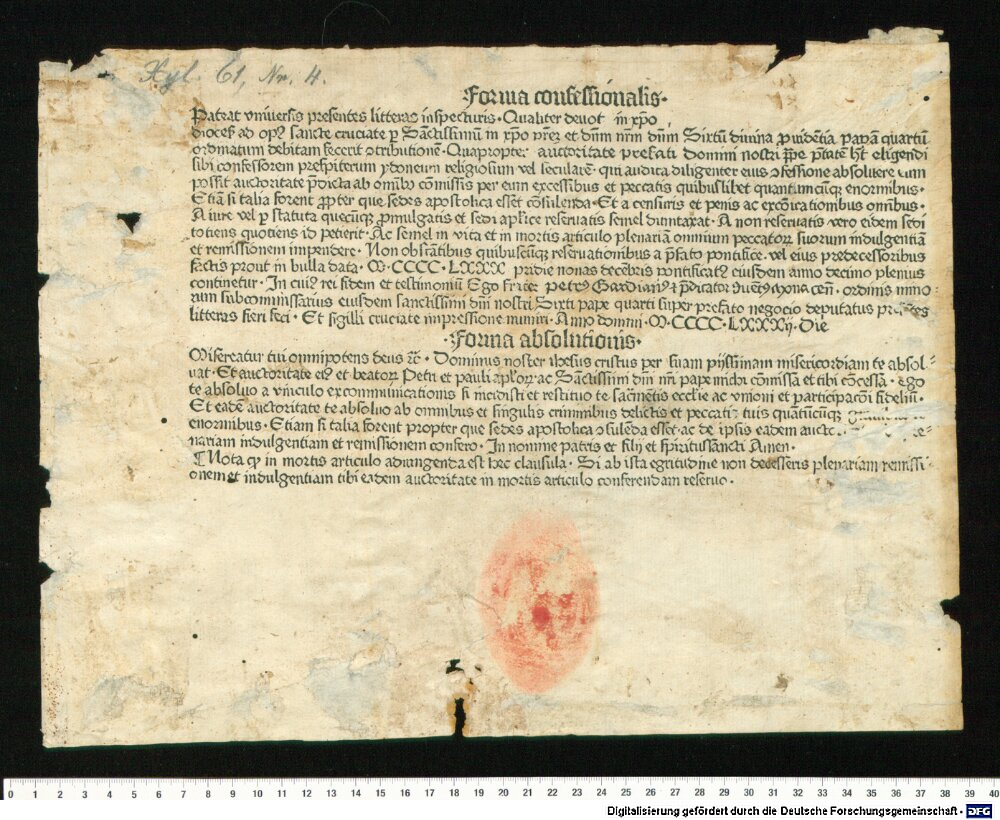 Xyl. 61, Nr. 4.
Forma confessionalis·
Pateat vniuersis presentes litteras inspecturis· Qualiter deuot in xp̄o
dioceſ ad opꝰ sancte cruciate ꝑ Sāctissimū in xp̄o pr̄ez et dn̄m nr̄m dn̄m Sixtū diuina ꝓuidētia papā quartū
ordinatum debitam fecerit ꝯtributionē· Quapropter auctoritate prefati domini nostri pp̄e ptātem hꝫ eligendi
sibi confessorem presbiterum ydoneum religiosum vel secularē· qui audita diligenter eius ꝯfessione absoluere eum
possit auctoritate p̄dicta ab oīnibꝰ cōmissis per eum excessibus et peccatis quibuslibet quantumcūqꝫ enormibus·
Etiā si talia forent ꝓpter que sedes apostolica esset cōsulenda· Et a censuris et penis ac excōicationibus omībus·
A iure vel ꝑ statuta quecūqꝫ ꝓmulgatis et sedi apl̄ice reseruatis semel dūmtaxat· A non reseruatis vero eidem sedi
totiens quotiens id petierit· Ac semel in vita et in mortis articulo plenariā omnium peccatoꝝ suorum indulgentiā
et remissionem impendere· Non obstātibus quibuscūqꝫ reseruationibus a p̄fato pontifice· vel eius predecessoribus
factis prout in bulla data· M·CCCC·LXXX pridie nonas decēbris pontificatꝰ eiusdem anno decimo plenius
continetur· In cuiꝰ rei fidem et testimoniū Ego Frater petrꝰ ordinis mino
rum subcommissarius eiusdem sanctissimi dn̄i nostri Sixti pape quarti super prefato negocio deputatus
litteras fieri feci· Et sigilli cruciate impressione muniri· Anno domini·M·CCCC·LXXXij·Die
·Forma absolutionis·
Misereatur tui omnipotens deus ⁊c̄· Dominus noster ihesus cristus per suam pijssimam misericordiam te absol⸗
uat· Et auctoritate eiꝰ et beatoꝝ Petri et pauli apl̄oꝝ ac Sāctissimi dn̄i nr̄i pape michi cōmissa et tibi cōcessa· Ego
te absoluo a vinculo excommunicationis si incidisti et restituo te sacramētis eccl̄ie ac vnioni et participacōi fideliū·
Et eadē auctoritate te absoluo ab omnibus et singulis criminibus delictis et peccatis tuis quātūcūqꝫ
enormibus· Etiam si talia forent propter que sedes apostolica ꝯsulēda esset· ac de ipsis eadem
nariam indulgentiam et remissionem confero· In nomine patris et filij et spiritussancti Amen·
¶Nota qꝫ in mortis articulo adiungenda est hec clausula· Si ab ista egritudine non decesseris plenariam remissi⸗
onem et indulgentiam tibi eadem auctoritate in mortis articulo conferendam reseruo·
0 1 2 3 4 5 6 7 8 9 10 11 12 13 14 15 16 17 18 19 20 21 22 23 24 25 26 27 28 29 30 31 32 33 34 35 36 37 38 39 40
Digitalisierung gefördert durch die Deutsche Forschungsgemeinschaft · DFG